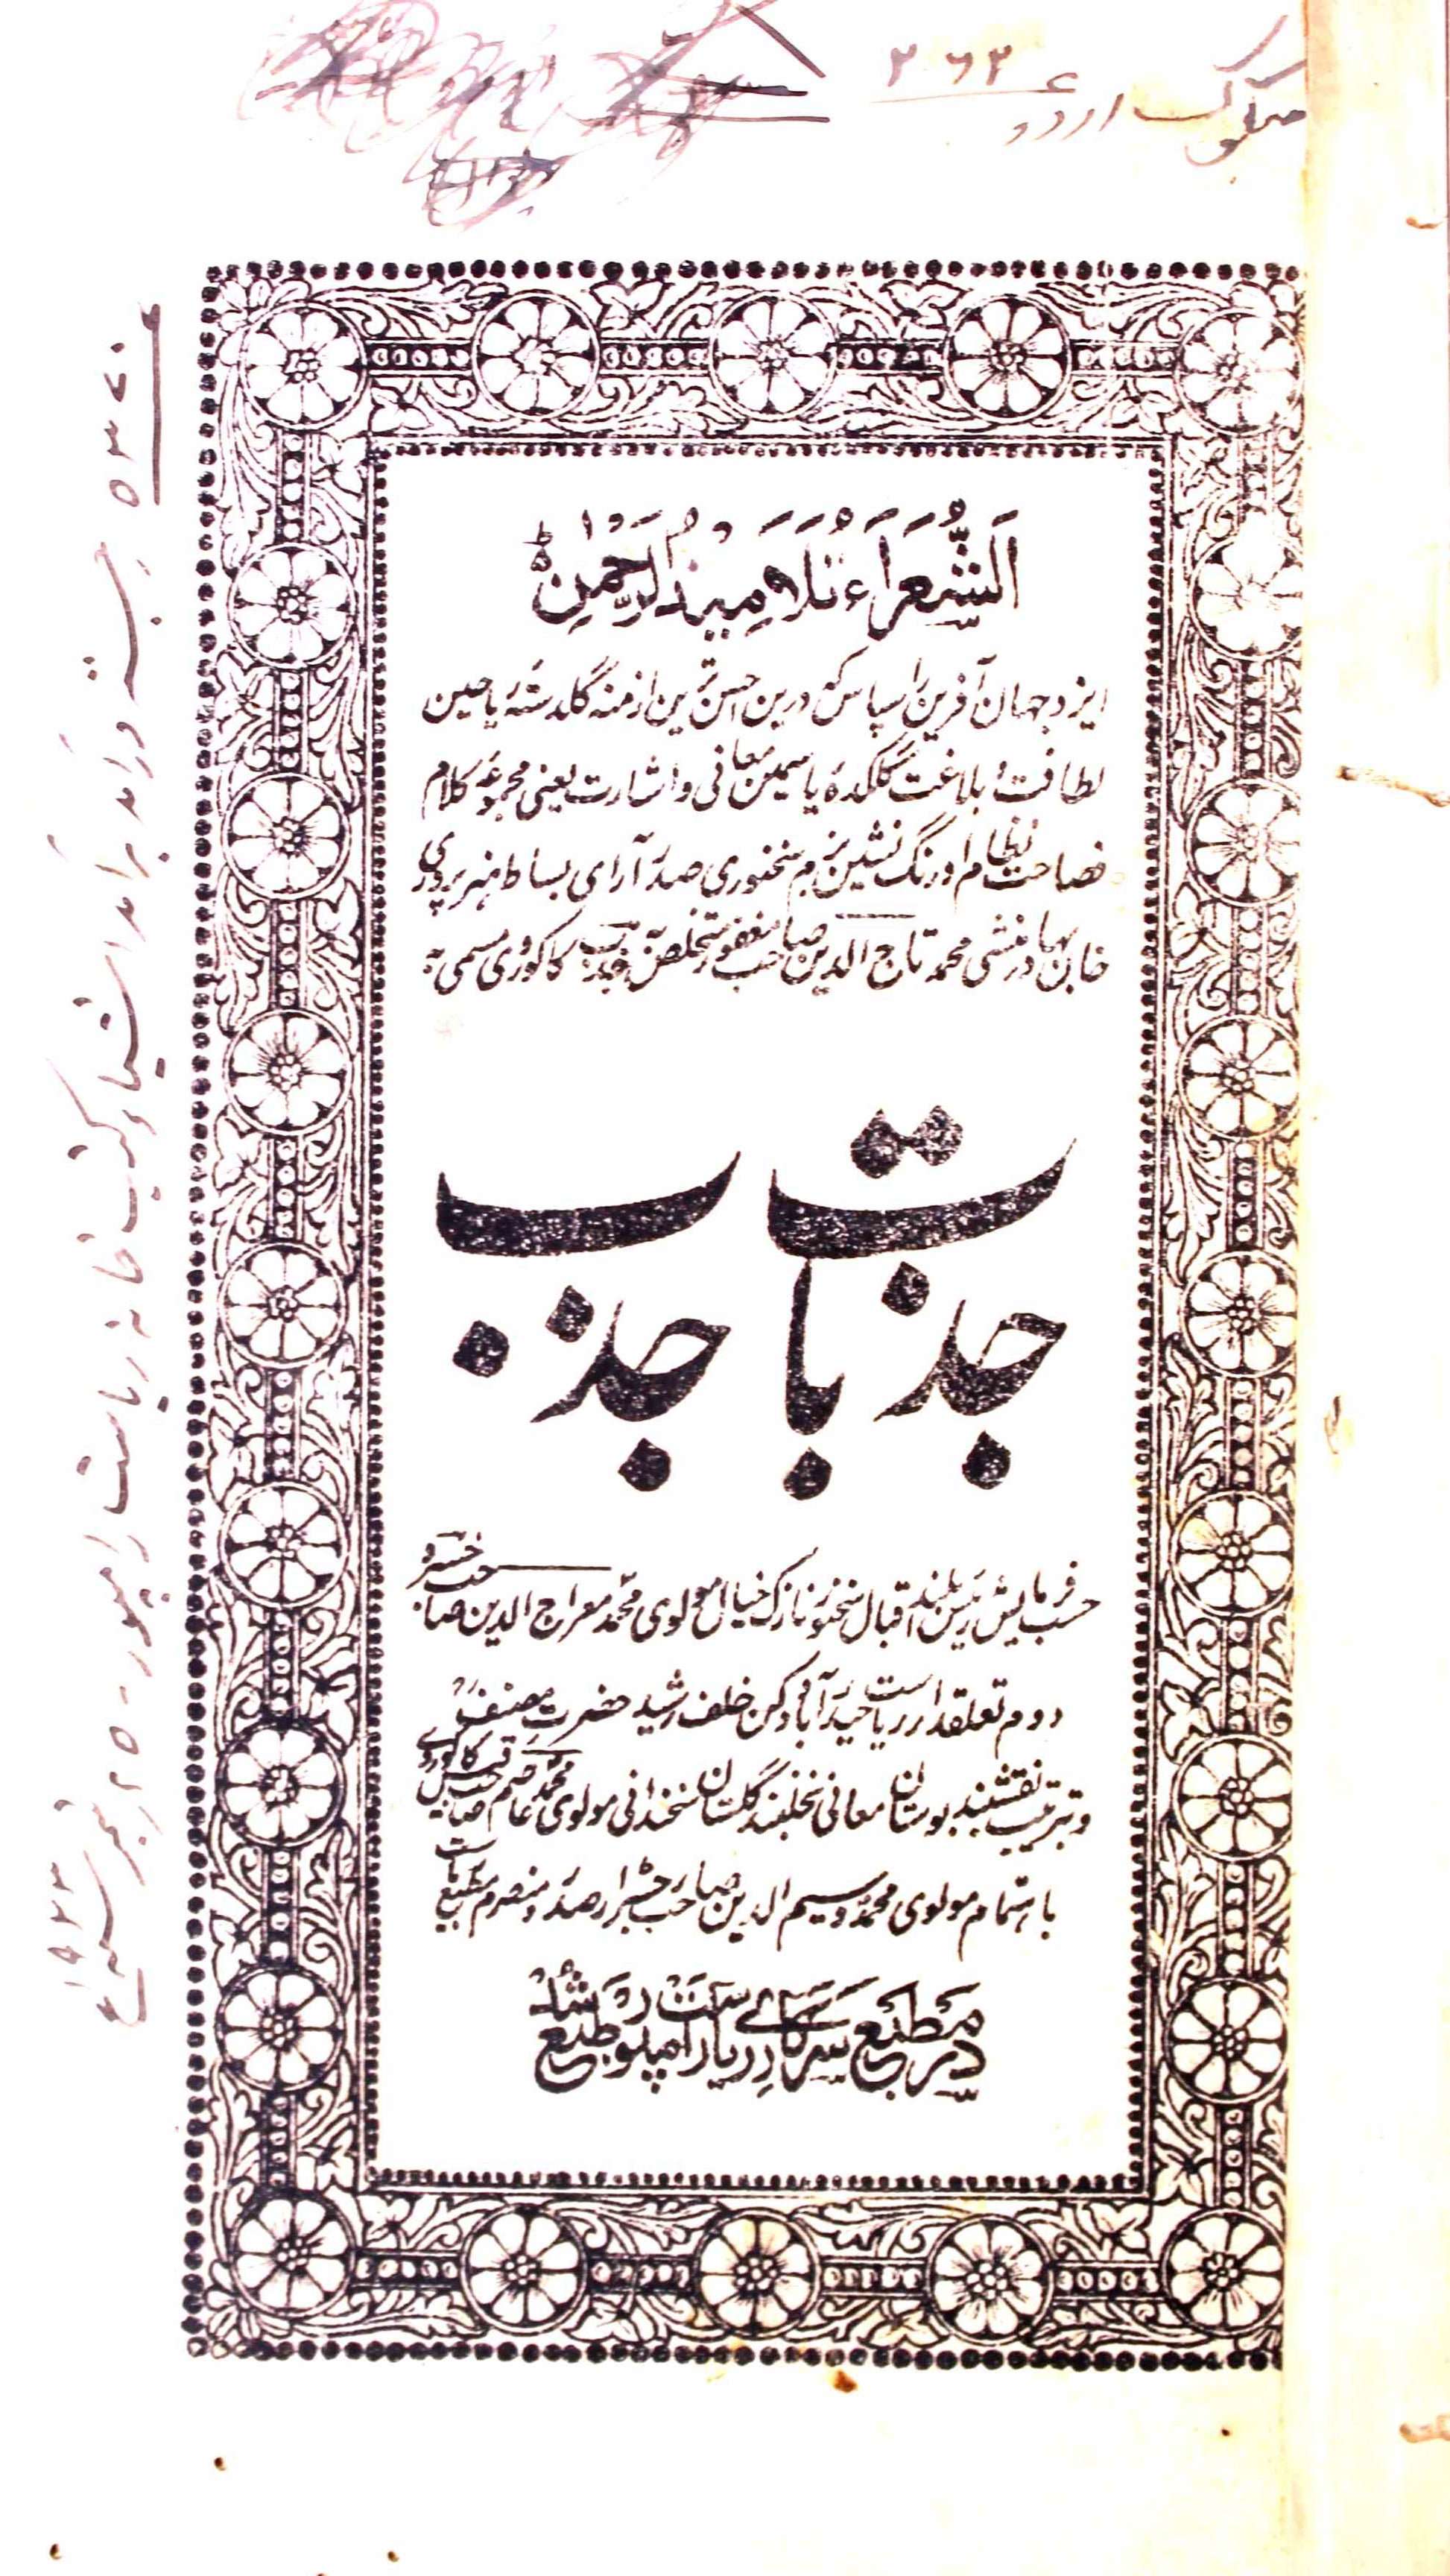 سلوک اردو
۲۶۲ء
اَلشُّعَرَاءُ تَلَامِیْذُ الرَّحْمٰنِ ط
ایزد جہان آفرین را سپاس کہ درین احسن ترین ازمنہ گلدستۂ ریاحین
لطافت و بلاغت گلکدۂ یاسمین معانی و اشارت یعنی مجموعۂ کلام
فصاحت نظام اورنگ نشین بزم سخنوری صدر آرای بساط ہنر پروری
خان بہادر منشی محمد تاج الدین صاحب مغفور متخلص بہ جذب کاکوروی مسمی بہ
جذبات جذب
حسب فرمایش رئیس بلند اقبال سخنور نازک خیال مولوی محمد معراج الدین صاحب خسرو
دوم تعلقدار ریاست حیدرآباد دکن خلف رشید حضرت مصنف
و بترتیب نقشبند بوستان معانی نخلبند گلستان سخندانی مولوی محمد عاصم صاحب قیس کاکوروی
باہتمام مولوی محمد وسیم الدین صاحب رجسٹرار صدر و منصرم مطبع ریاست
در مطبع سرکاری ریاست رامپور طبع شد
۵۳۷۰ رجسٹر درآمد برآمد اشیاء و کتب خانہ ریاست رامپور - ۲۵ دسمبر سنہ ۱۹۲۳ع